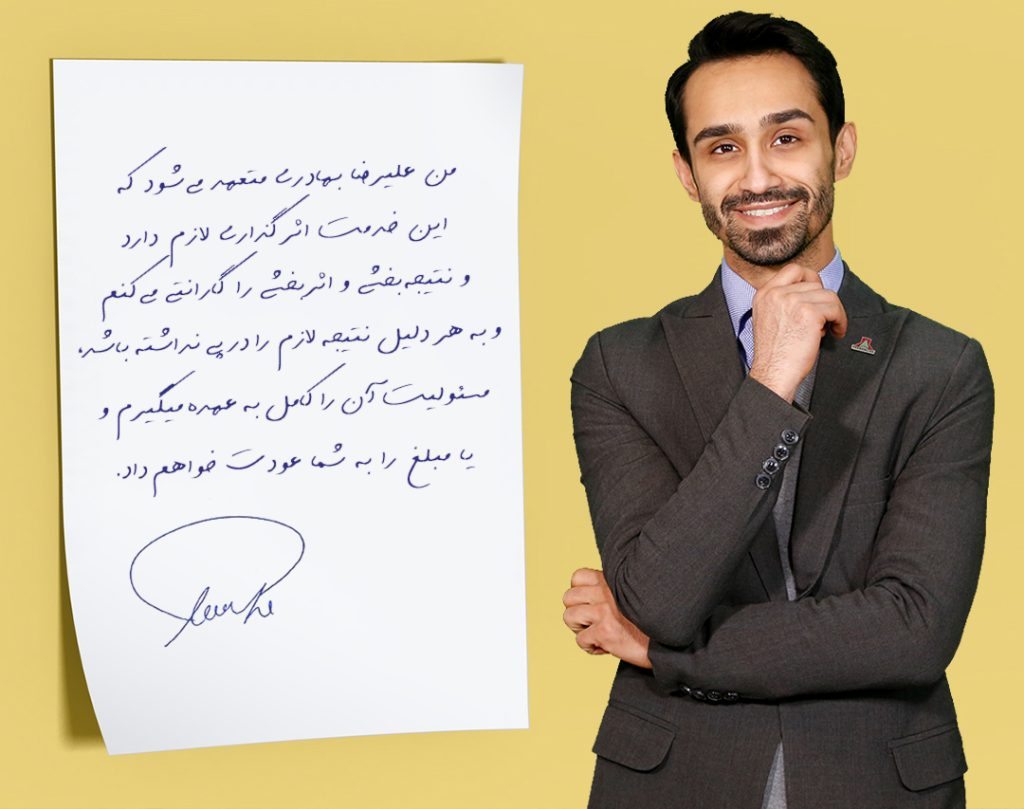 من علیرضا بهادری متعهد می‌شود که
این خدمت اثرگذاری لازم دارد
و نتیجه‌بخشی و اثربخشی را گارانتی می‌کنم
و به هر دلیل نتیجه لازم را در پی نداشته باشد،
مسئولیت آن را کامل به عهده میگیرم و
یا مبلغ را به شما عودت خواهم داد.